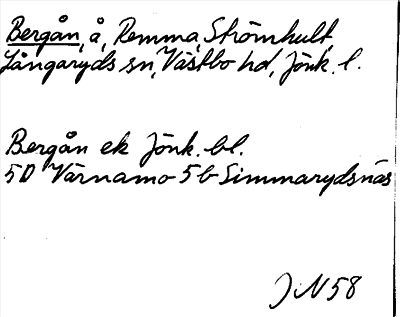 Bergån, å, Remma, Strömhult,
Långaryds sn, Västbo hd, Jönk. l.
Bergån ek Jönk. bl.
5D Värnamo 5b Simmarydsnäs
JN58